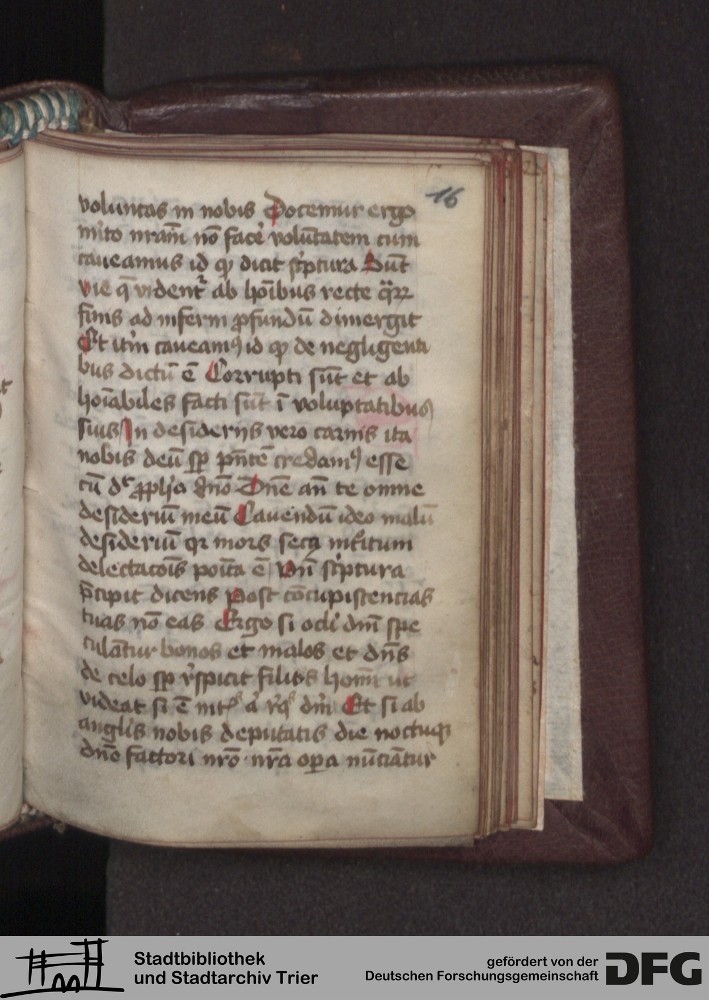 16
voluntas in nobis Docemur ergo
m̄ito nr̄am nō facē volūtatem cum
caueamus id qp dicit sc̄ptura Sūt
vie q̄ vident᷑ ab hōibus recte q̄r
finis ad inferni ꝓfundū dimergit
Et itm̄ caueamꝰ id qp de negligenti
bus dictū ē Corrupti sūt et ab
hoīabiles facti sūt ī voluptatibus
suis In desiderijs vero carnis ita
nobis deū sp̄ pn̄tē credamꝰ esse
cū dc̄ ꝓph̄a dn̄o Dn̄e an̄ te omne
desideriū meū Cauendū ideo malū
desideriū qr mors secꝰ intītum
delectacōis poīta ē Vn̄ sc̄ptura
p̄cipit dicens Post cōcupiscencias
tuas nō eas Ergo si ocli dn̄i spe
culātur bonos et malos et dn̄s
de celo sp̄ r̄spicit filios homī ut
videat si ē
dn̄ Et si ab
anglis nobis deputatis die noctuqꝫ
dn̄o factori nr̄o nr̄a oꝑa nūciātur
Stadtbibliothek
und Stadtarchiv Trier
gefördert von der
Deutschen Forschungsgemeinschaft
DFG